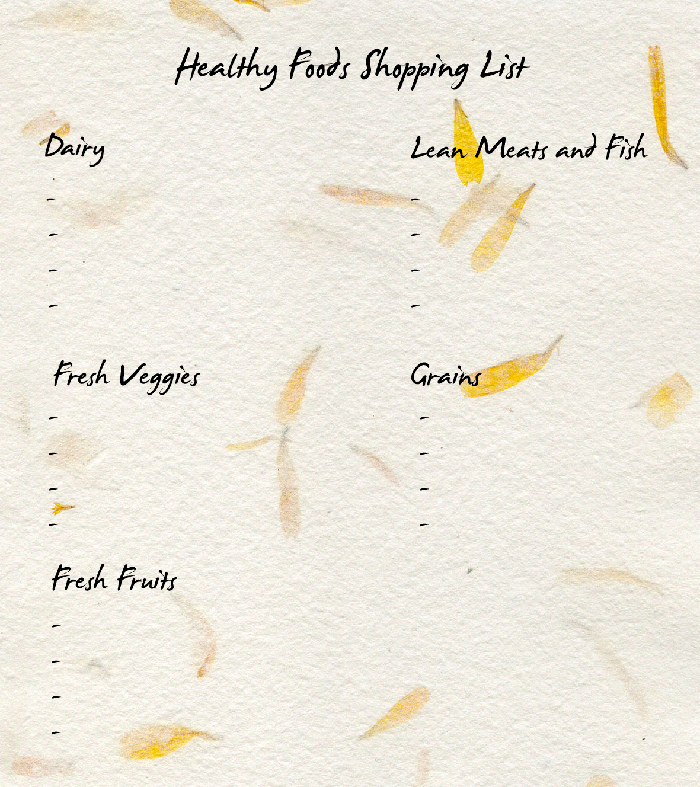 Healthy Foods Shopping List
Dairy
-
-
-
-
Lean Meats and Fish
-
-
-
-
Fresh Veggies
-
-
-
-
Grains
-
-
-
-
Fresh Fruits
-
-
-
-